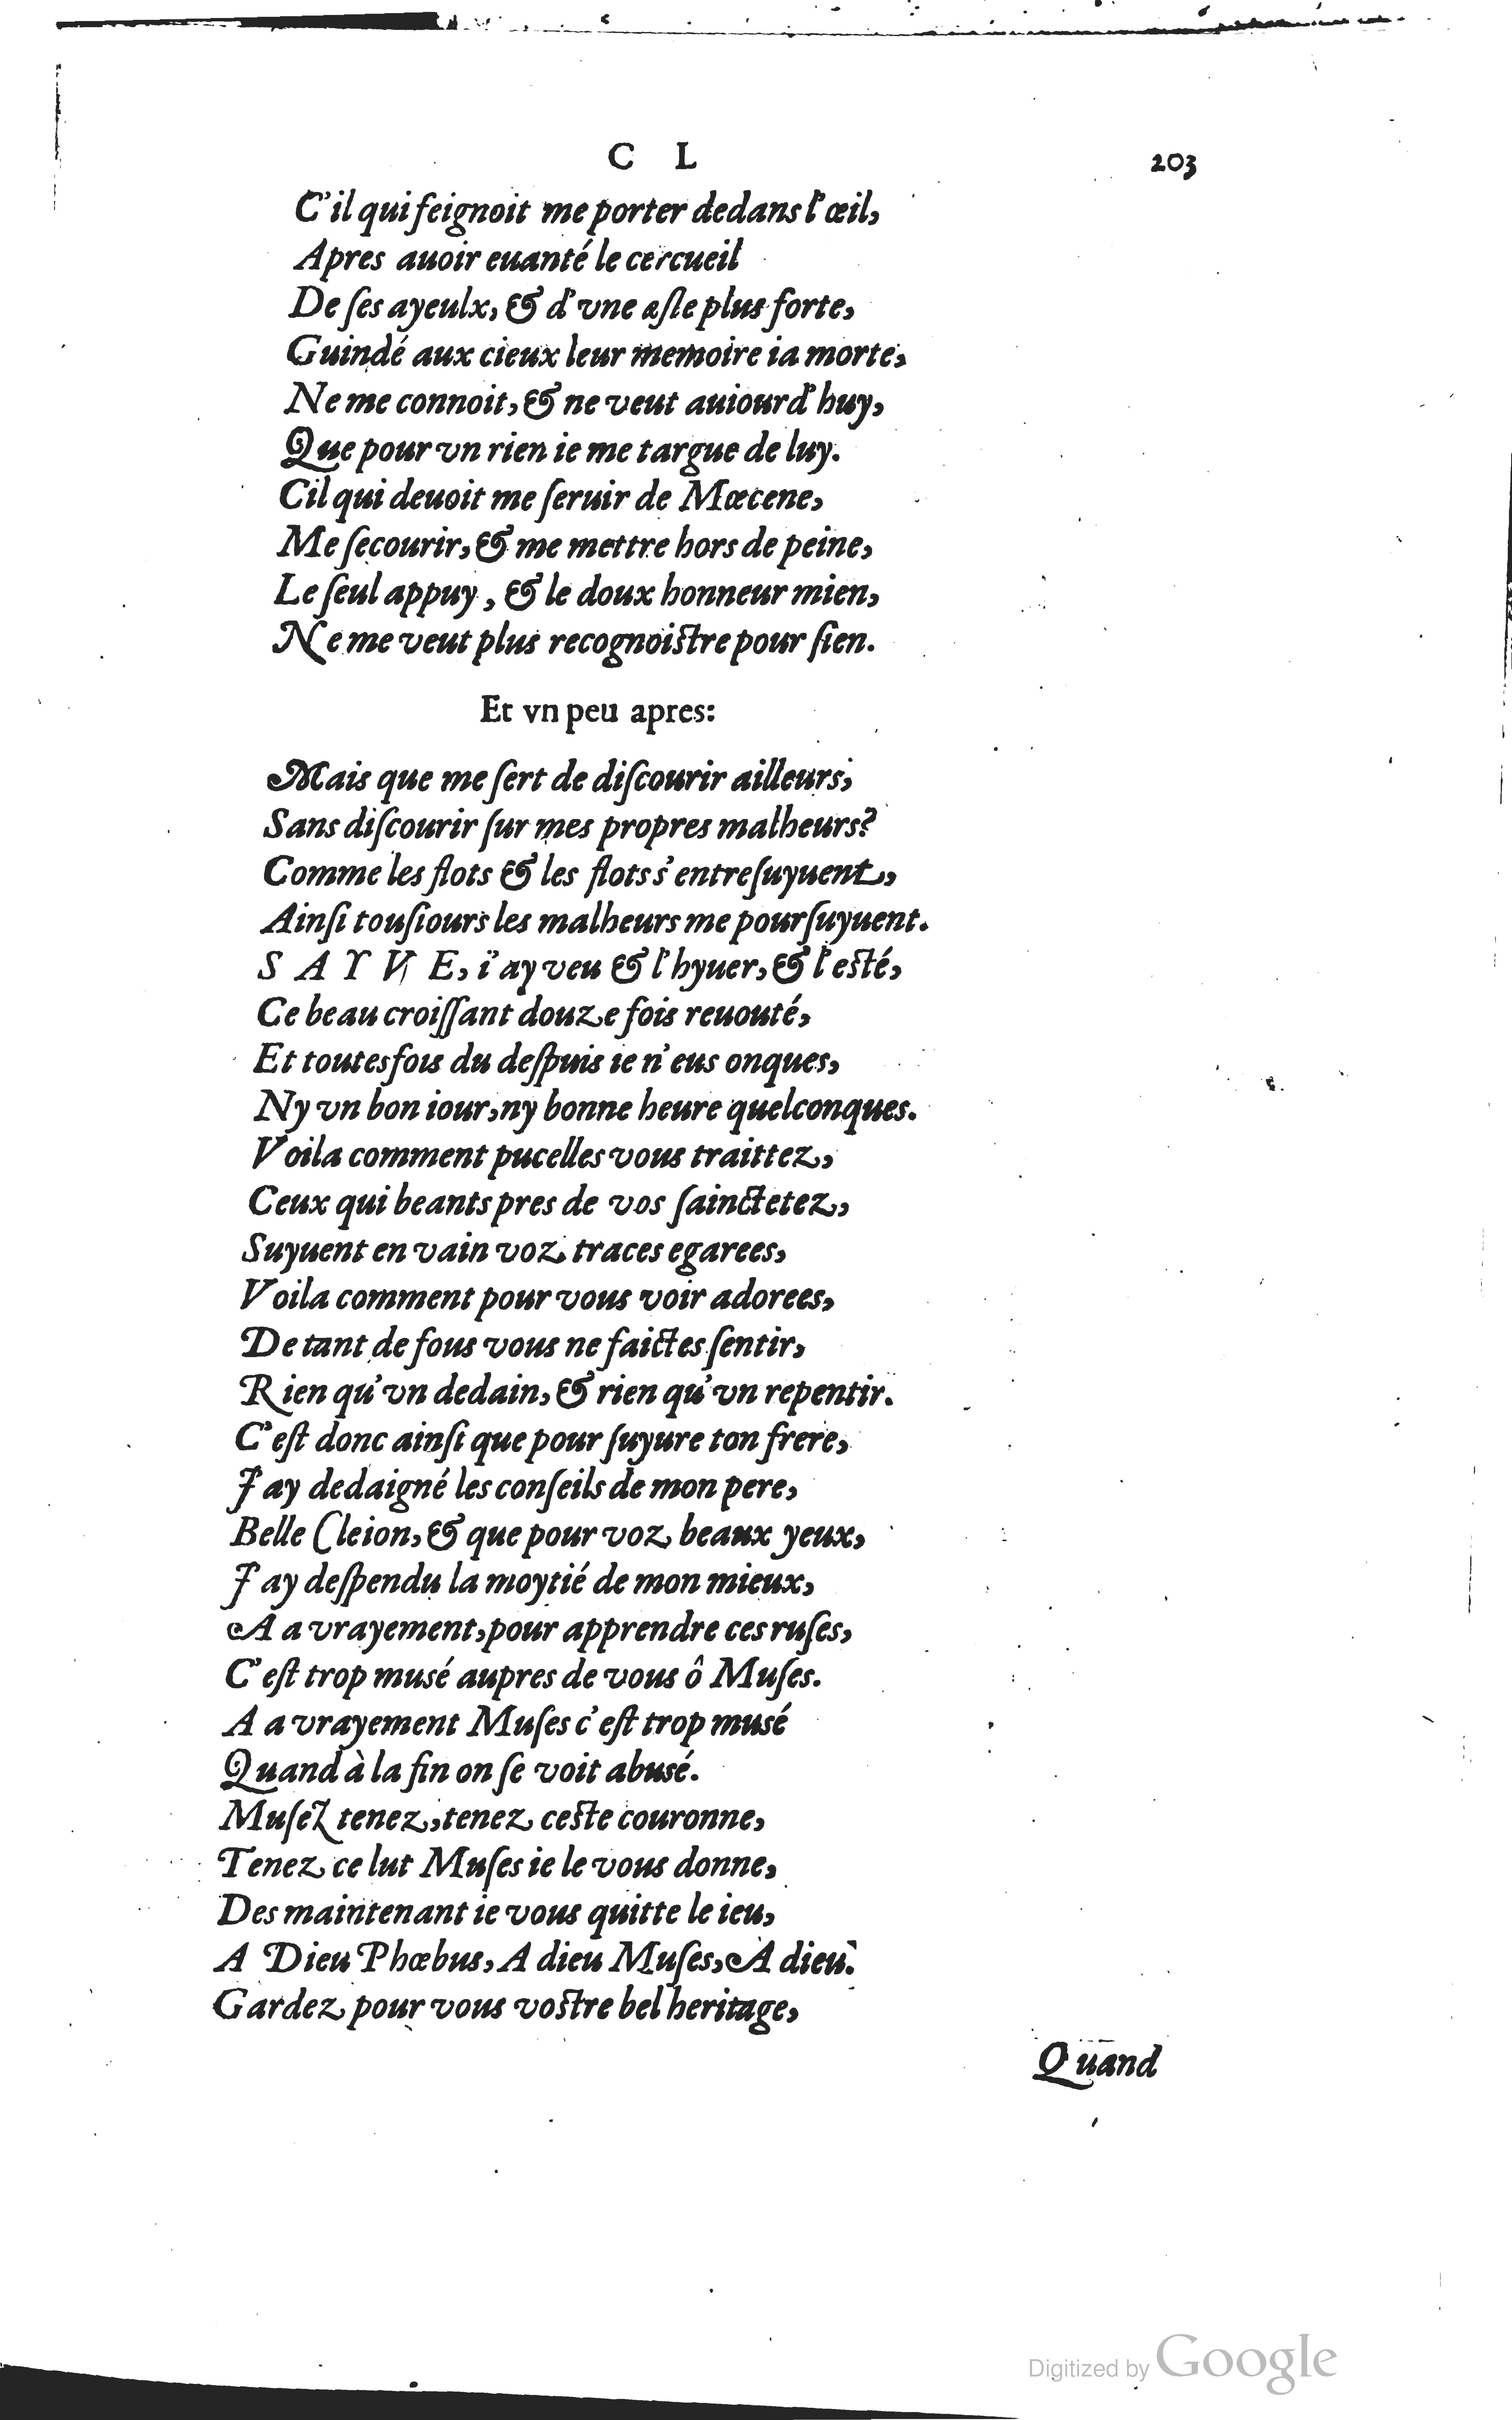 C L 203
C'il qui feignoit me porter dedans l'œil,
Apres auoir euanté le cercueil
De ſes ayeulx, & d'vne aſle plus forte,
Guindé aux cieux leur memoire ia morte,
Ne me connoit, & ne veut auiourd'huy,
Que pour vn rien ie me targue de luy.
Cil qui deuoit me ſeruir de Mœcene,
Me ſecourir, & me mettre hors de peine,
Le ſeul appuy, & le doux honneur mien,
Ne me veut plus recognoiſtre pour ſien.
Et vn peu apres:
Mais que me ſert de diſcourir ailleurs,
Sans diſcourir ſur mes propres malheurs?
Comme les flots & les flots s'entreſuyuent,
Ainſi touſiours les malheurs me pourſuyuent.
S A Y V E, i'ay veu & l'hyuer, & l'eſté,
Ce beau croiſſant douze fois reuouté,
Et toutesfois du deſpuis ie n'eus onques,
Ny vn bon iour, ny bonne heure quelconques.
Voila comment pucelles vous traittez,
Ceux qui beants pres de vos ſainctetez,
Suyuent en vain voz traces egarees,
Voila comment pour vous voir adorees,
De tant de fous vous ne faictes ſentir,
Rien qu'vn dedain, & rien qu'vn repentir.
C'eſt donc ainſi que pour ſuyure ton frere,
J'ay dedaigné les conſeils de mon pere,
Belle Cleion, & que pour voz beaux yeux,
J'ay deſpendu la moytié de mon mieux,
A a vrayement, pour apprendre ces ruſes,
C'eſt trop musé aupres de vous ô Muſes.
A a vrayement Muſes c'eſt trop musé
Quand à la fin on ſe voit abusé.
Muſez tenez, tenez ceſte couronne,
Tenez ce lut Muſes ie le vous donne,
Des maintenant ie vous quitte le ieu,
A Dieu Phœbus, A dieu Muſes, A dieu.
Gardez pour vous voſtre bel heritage,
Quand
Digitized by Google